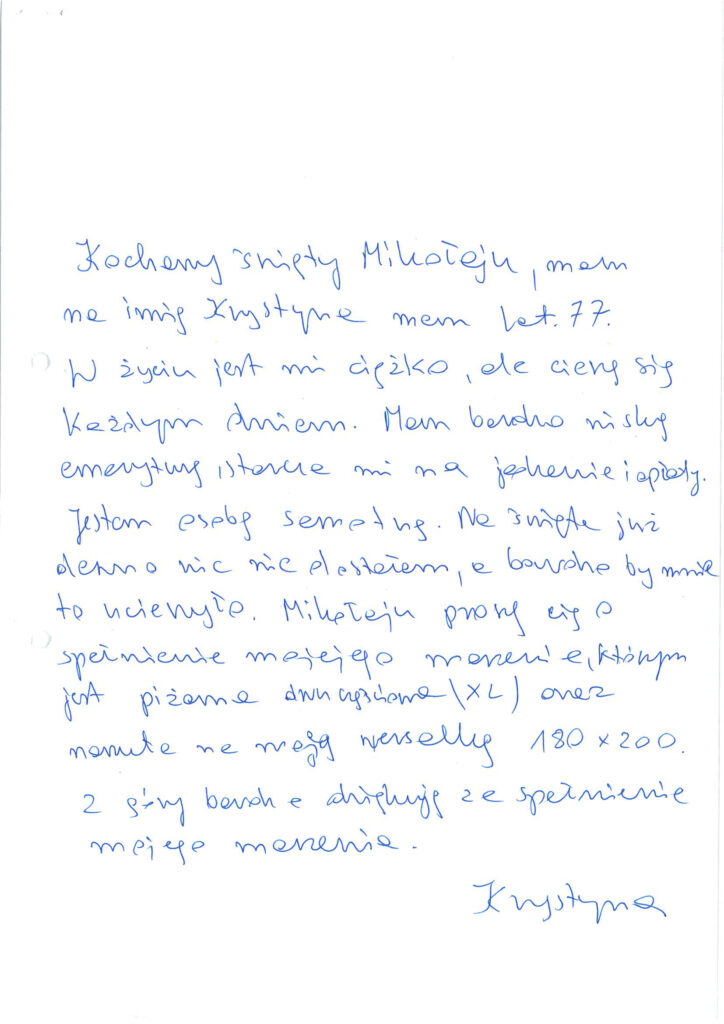 Kochany święty Mikołaju, mam
na imię Krystyna mam lat. 77.
W życiu jest mi ciężko, ale cieszę się
każdym dniem. Mam bardzo niską
emeryturę, starcza mi na jedzenie i opłaty.
Jestem osobą samotną. Na święta już
dawno nic nie dostałam, a bardzo by mnie
to ucieszyło. Mikołaju proszę cię o
spełnienie mojejego marzenie, którym
jest piżama dwuczęściowa (XL) oraz
narzuta na moją wersalkę 180 x 200.
Z góry bardzo dziękuję za spełnienie
mojego marzenia.
Krystyna